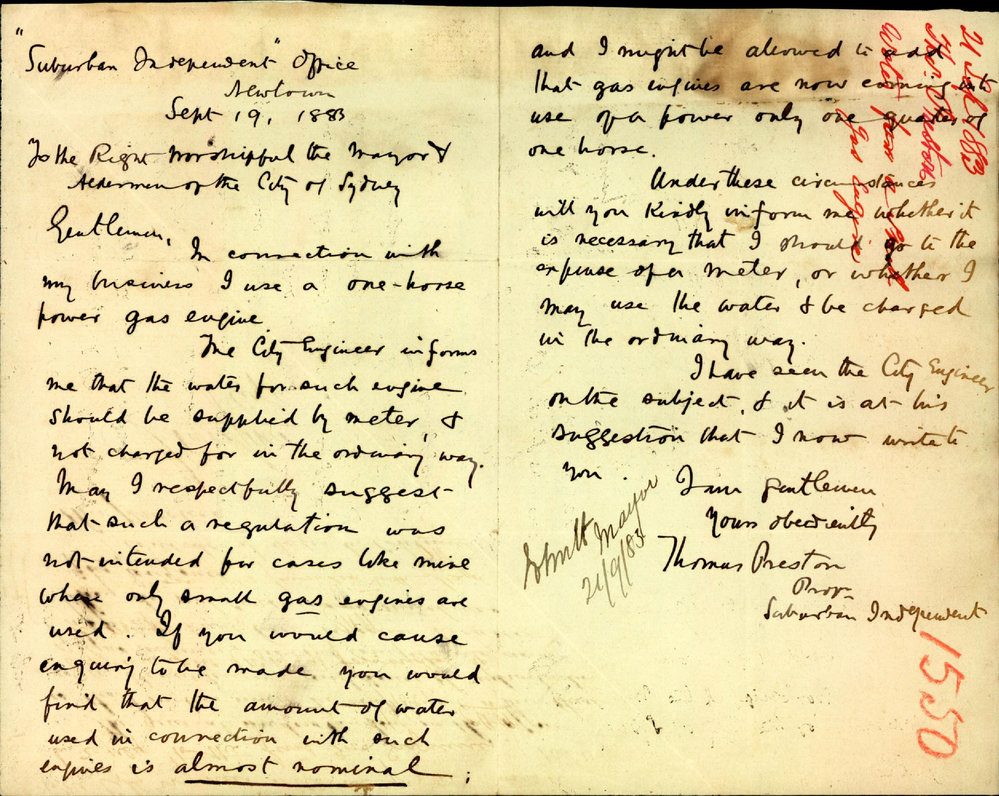 "Suburban Independent" Office
Newtown
Sept 19, 1883
To the Right Worshipful the Mayor &
Aldermen of the City of Sydney
Gentlemen,
In connection with
my business I use a one-horse
power gas engine
The City Engineer informs
me that the water for such engine
should be supplied by meter, &
not charged for in the ordinary way.
May I respectfully suggest
that such a regulation was
not intended for cases like mine
where only small gas engines are
used. If you would cause
enquiry to be made you would
find that the amount of water
used in connection with such
engines is almost nominal;
and I might be allowed to add
that gas engines are now coming into
use of a power only one quarter of
one horse.
Under these circumstances
will you kindly inform me whether it
is necessary that I should go to the
expense of a meter, or whether I
may use the water & be charged
in the ordinary way.
I have seen the City Engineer
on the subject, & it is at his
suggestion that I now write to
you.
I am gentlemen
Yours obediently
Thomas Preston
Prop
Suburban Independent
Mayor
21/9/83
21 Sept 1883
Thos Preston
Water for a
Gas Engine
1550